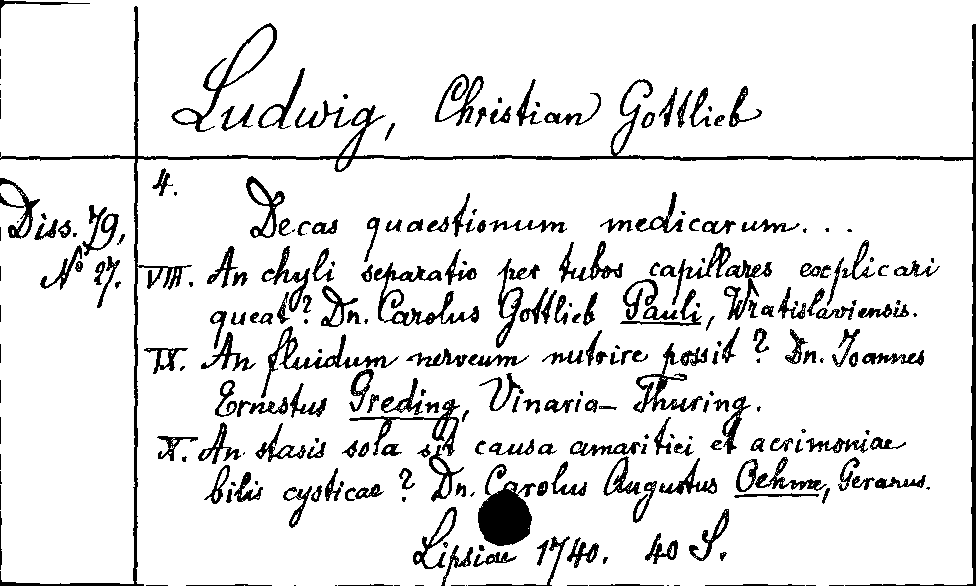 Ludwig, Christian Gottlieb
4.
Diss. 79,
No 27.
Decas quaestionum medicarum...
VIII. An chyli separatio per tubos capillares explicari
queat? Dn. Carolus Gottlieb Pauli, Wratislaviensis.
IX. An fluidum nerveum nutrire possit? Dn. Ioannes
Ernestus Greding, Vinaria-Thuring.
X. An stasis sola sit causa amaritiei et acrimoniae
bilis cysticae? Dn. Carolus Augustus Oehme, Geranus.
Lipsiae 1740. 40 S.